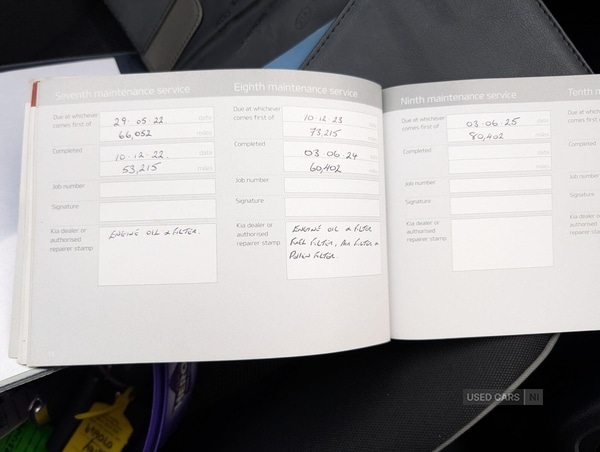 Seventh maintenance service
Due at whichever comes first of
29.05.22 date
66,052 miles
Completed
10.12.22. date
53,215 miles
Job number
Signature
Kia dealer or authorised repairer stamp
ENGINE OIL & FILTER.
Eighth maintenance service
Due at whichever comes first of
10.12.23
73,215
Completed
03.06.24 date
60,402 miles
Job number
Signature
Kia dealer or authorised repairer stamp
ENGINE OIL & FILTER
FUEL FILTER, AIR FILTER &
POLLEN FILTER.
Ninth maintenance service
Due at whichever comes first of
03.06.25 date
80,402 miles
Completed
date
miles
Job number
Signature
Kia dealer or authorised repairer stamp
Tenth m
USED CARS NI